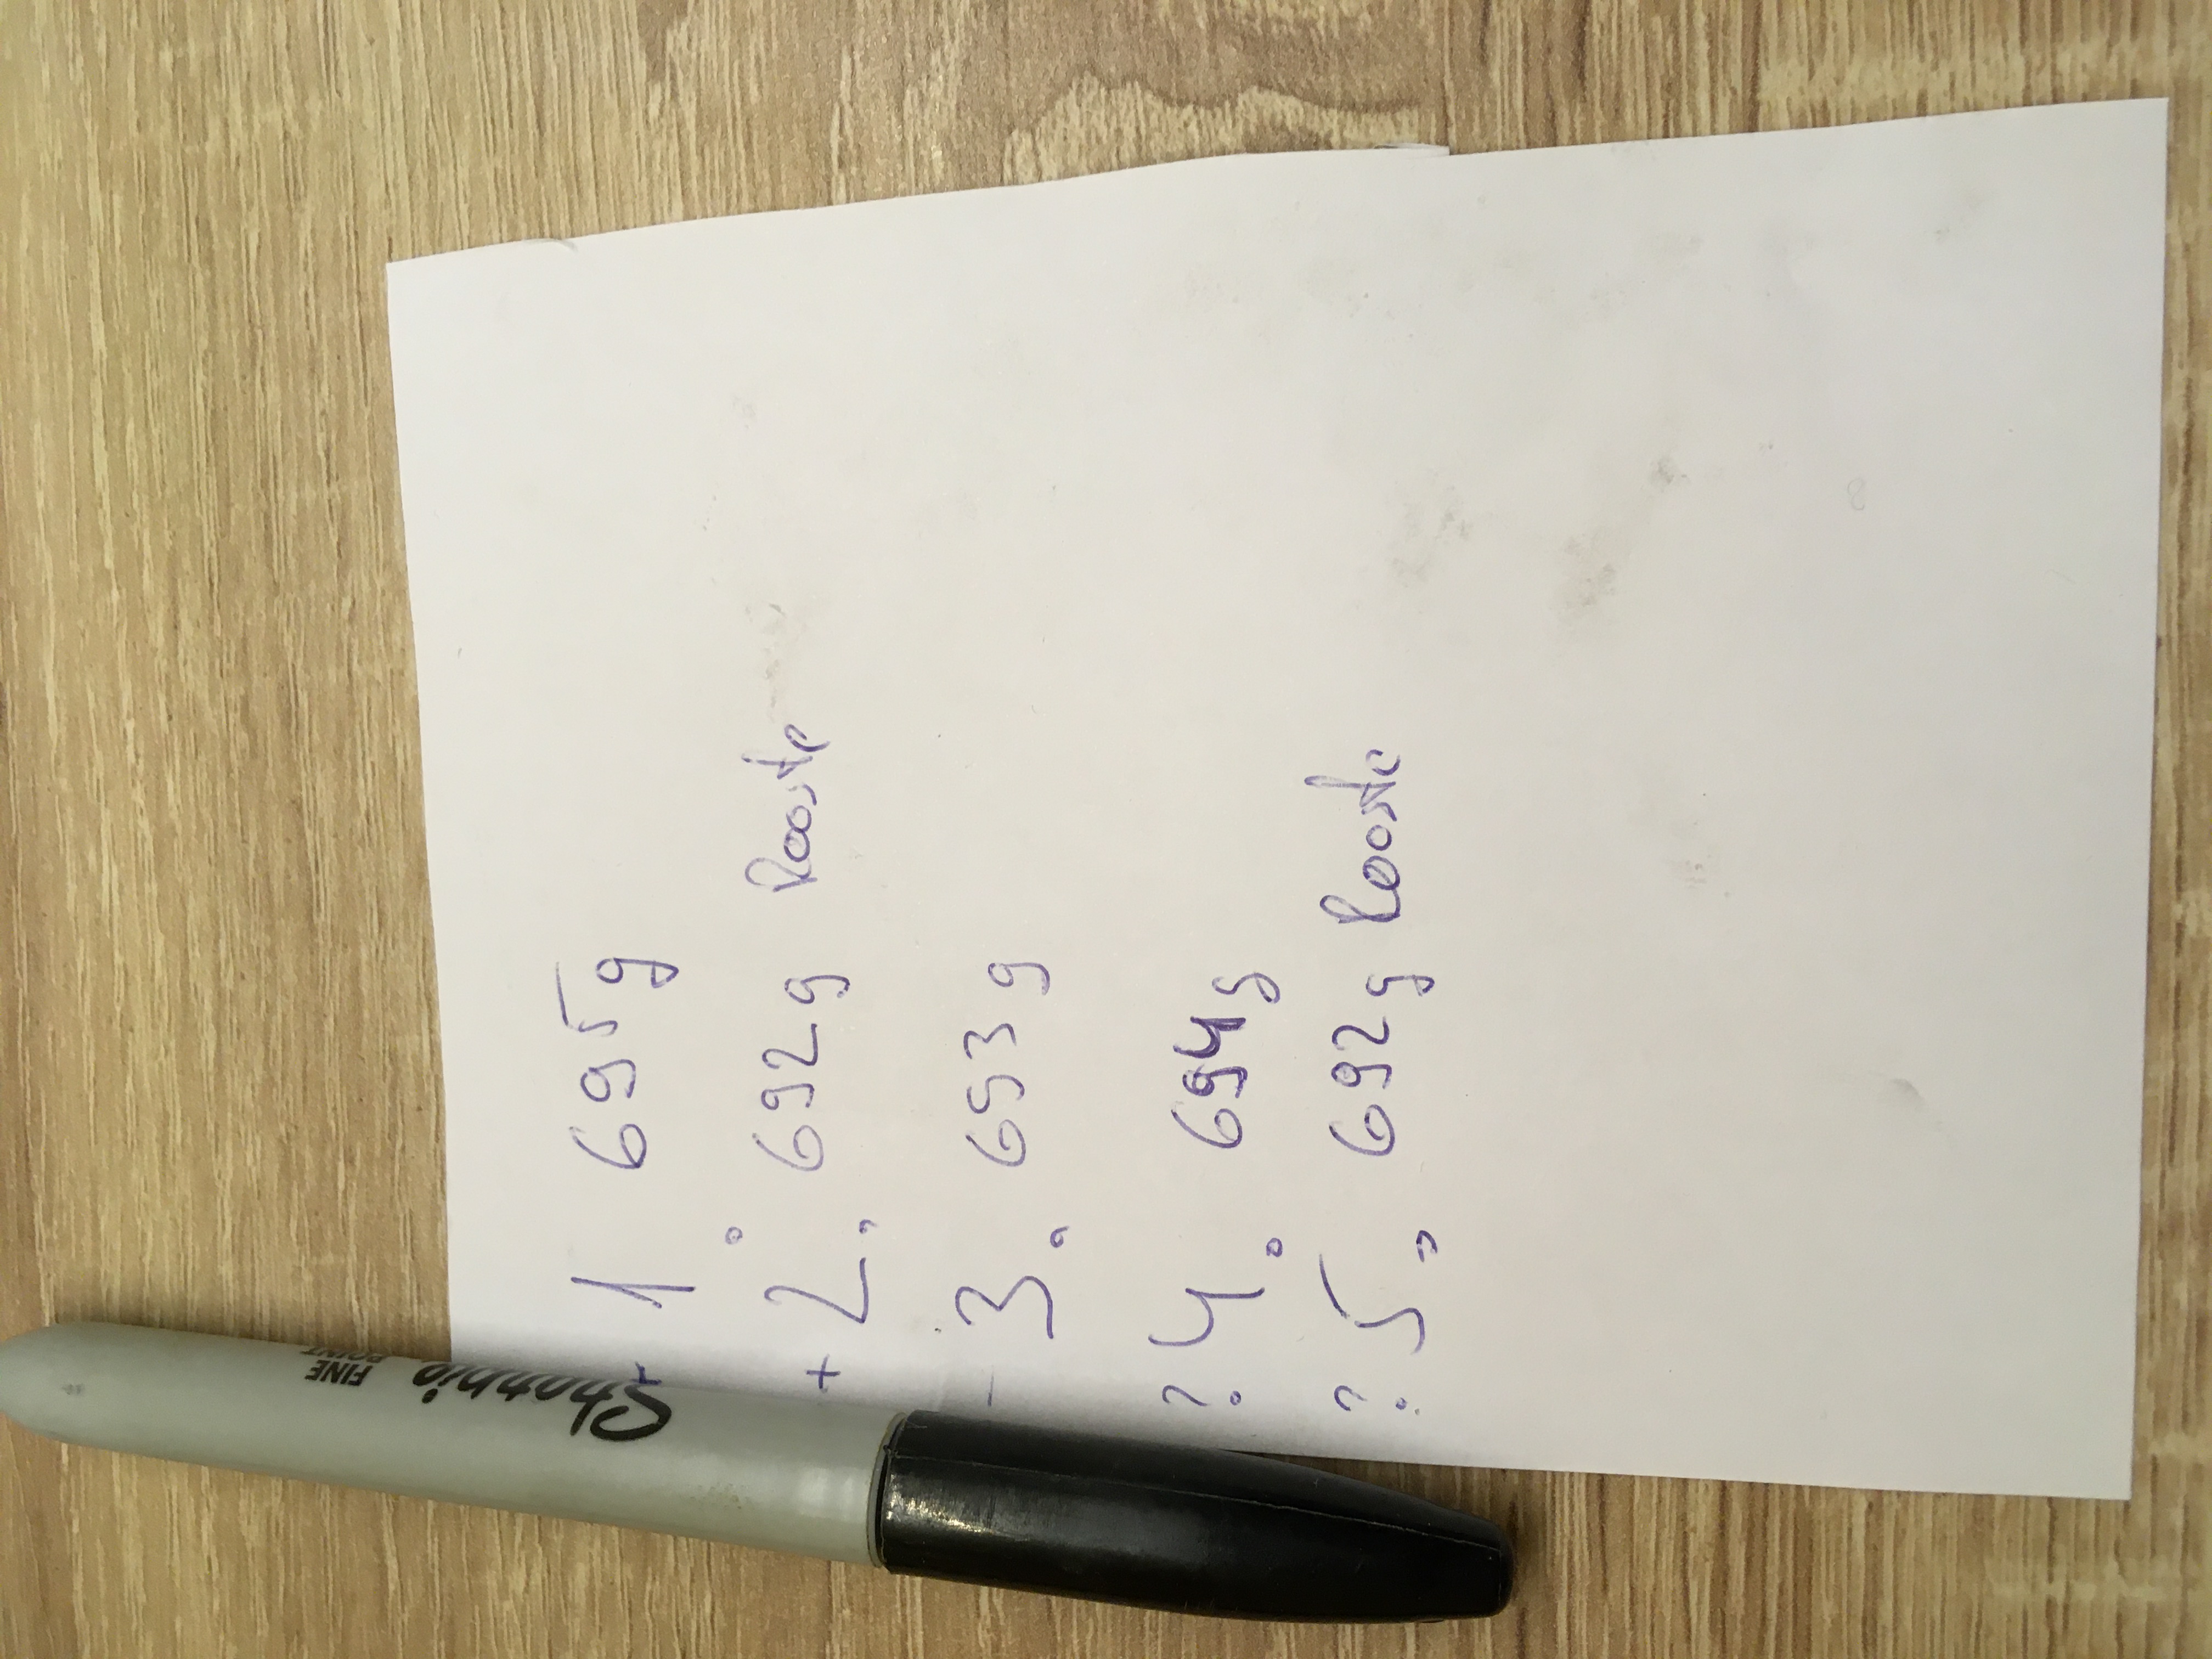 + 1. 695 g
+ 2. 692 g Rooste
- 3. 653 g
? 4. 694 g
? 5. 692 g Rooste
Sharpie
FINE
POINT